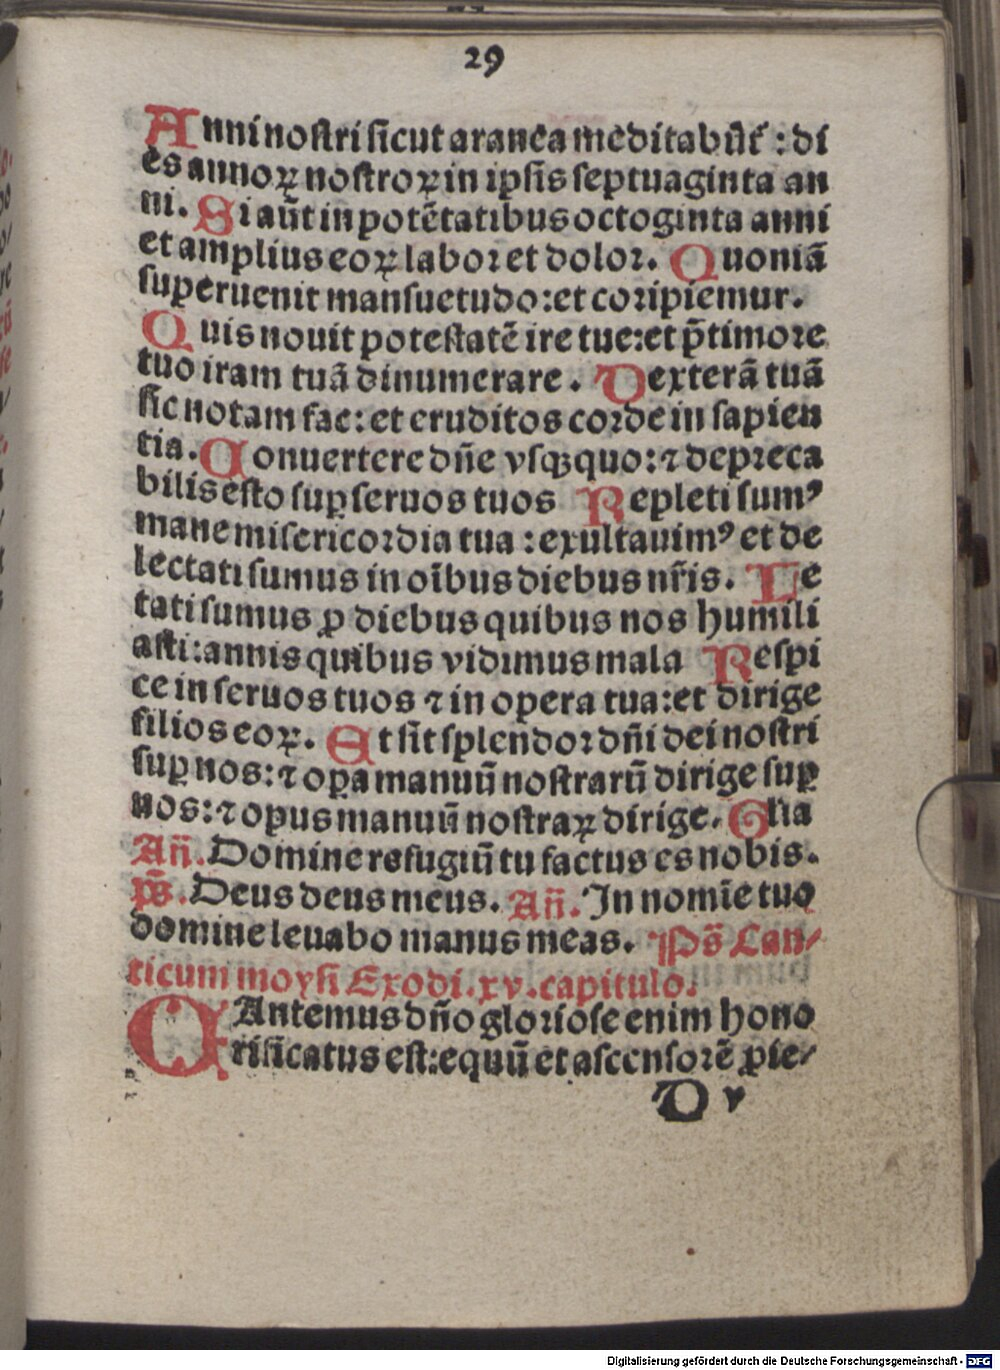 29
Anni nostri sicut aranea meditabūt᷑ : di
es annoꝝ nostroꝝ in ipsis septuaginta an
ni. Si aūt in potētatibus octoginta anni
et amplius eoꝝ labor et dolor. Quoniā
superuenit mansuetudo: et coripiemur.
Quis nouit potestatē ire tue: et p̄ timore
tuo iram tuā dinumerare. Dexterā tuā
sic notam fac: et eruditos corde in sapien
tia. Conuertere dn̄e vsqꝫquo: ⁊ depreca
bilis esto suꝑ seruos tuos Repleti sumꝰ
mane misericordia tua : exultauimꝰ et de
lectati sumus in oībus diebus nr̄is. Le
tati sumus ꝓ diebus quibus nos humili
asti: annis quibus vidimus mala Respi
ce in seruos tuos ⁊ in opera tua: et dirige
filios eoꝝ. Et sit splendor dn̄i dei nostri
suꝑ nos: ⁊ oꝑa manuū nostrarū dirige suꝑ
nos: ⁊ opus manuū nostraꝝ dirige. Gl̄ia
Añ. Domine refugiū tu factus es nobis.
ps̄. Deus deus meus. Añ. In nomīe tuo
domine leuabo manus meas. Ps̄ Can-
ticum moysi Exodi. xv. capitulo.
CAntemus dn̄o gloriose enim hono
rificatus est: equū et ascensorē ꝓie-
D v
Digitalisierung gefördert durch die Deutsche Forschungsgemeinschaft - DFG